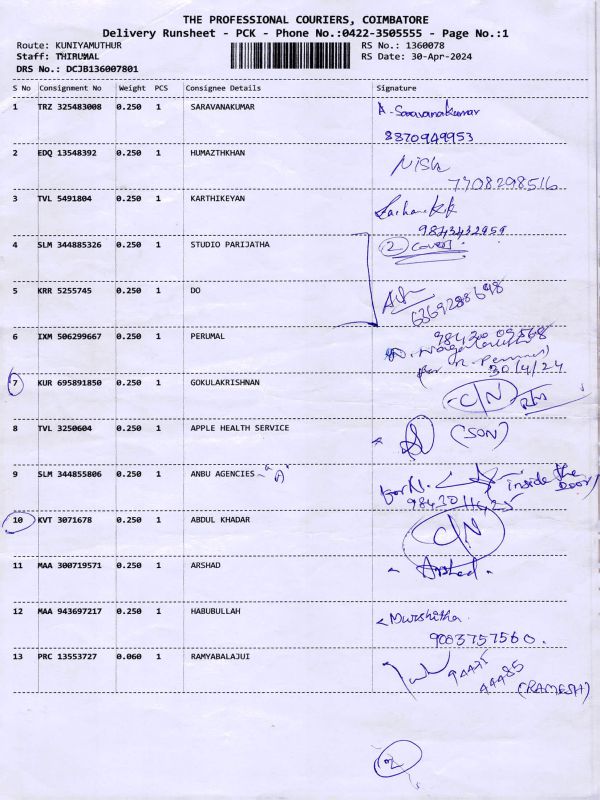 THE PROFESSIONAL COURIERS, COIMBATORE
Delivery Runsheet - PCK - Phone No.:0422-3505555 - Page No.:1
Route: KUNIYAMUTHUR RS No.: 1360078
Staff: THIRUMAL RS Date: 30-Apr-2024
DRS No.: DCJB136007801
S No Consignment No Weight PCS Consignee Details Signature
1 TRZ 325483008 0.250 1 SARAVANAKUMAR A-Saravanakumar
8870949953
2 EDQ 13548392 0.250 1 HUMAZTHKHAN Nisha
7708298516
3 TVL 5491804 0.250 1 KARTHIKEYAN
9843432959
4 SLM 344885326 0.250 1 STUDIO PARIJATHA 2 covers.
5 KRR 5255745 0.250 1 DO
6369288698
6 IXM 506299667 0.250 1 PERUMAL
30/4/24
7 KUR 695891850 0.250 1 GOKULAKRISHNAN C/N
8 TVL 3250604 0.250 1 APPLE HEALTH SERVICE (SON)
9 SLM 344855806 0.250 1 ANBU AGENCIES - "A" for N. (inside the Door)
10 KVT 3071678 0.250 1 ABDUL KHADAR C/N
11 MAA 300719571 0.250 1 ARSHAD Arshad
12 MAA 943697217 0.250 1 HABUBULLAH Murshitha
9003757560.
13 PRC 13553727 0.060 1 RAMYABALAJUI 94435
44485
(RAMESH)